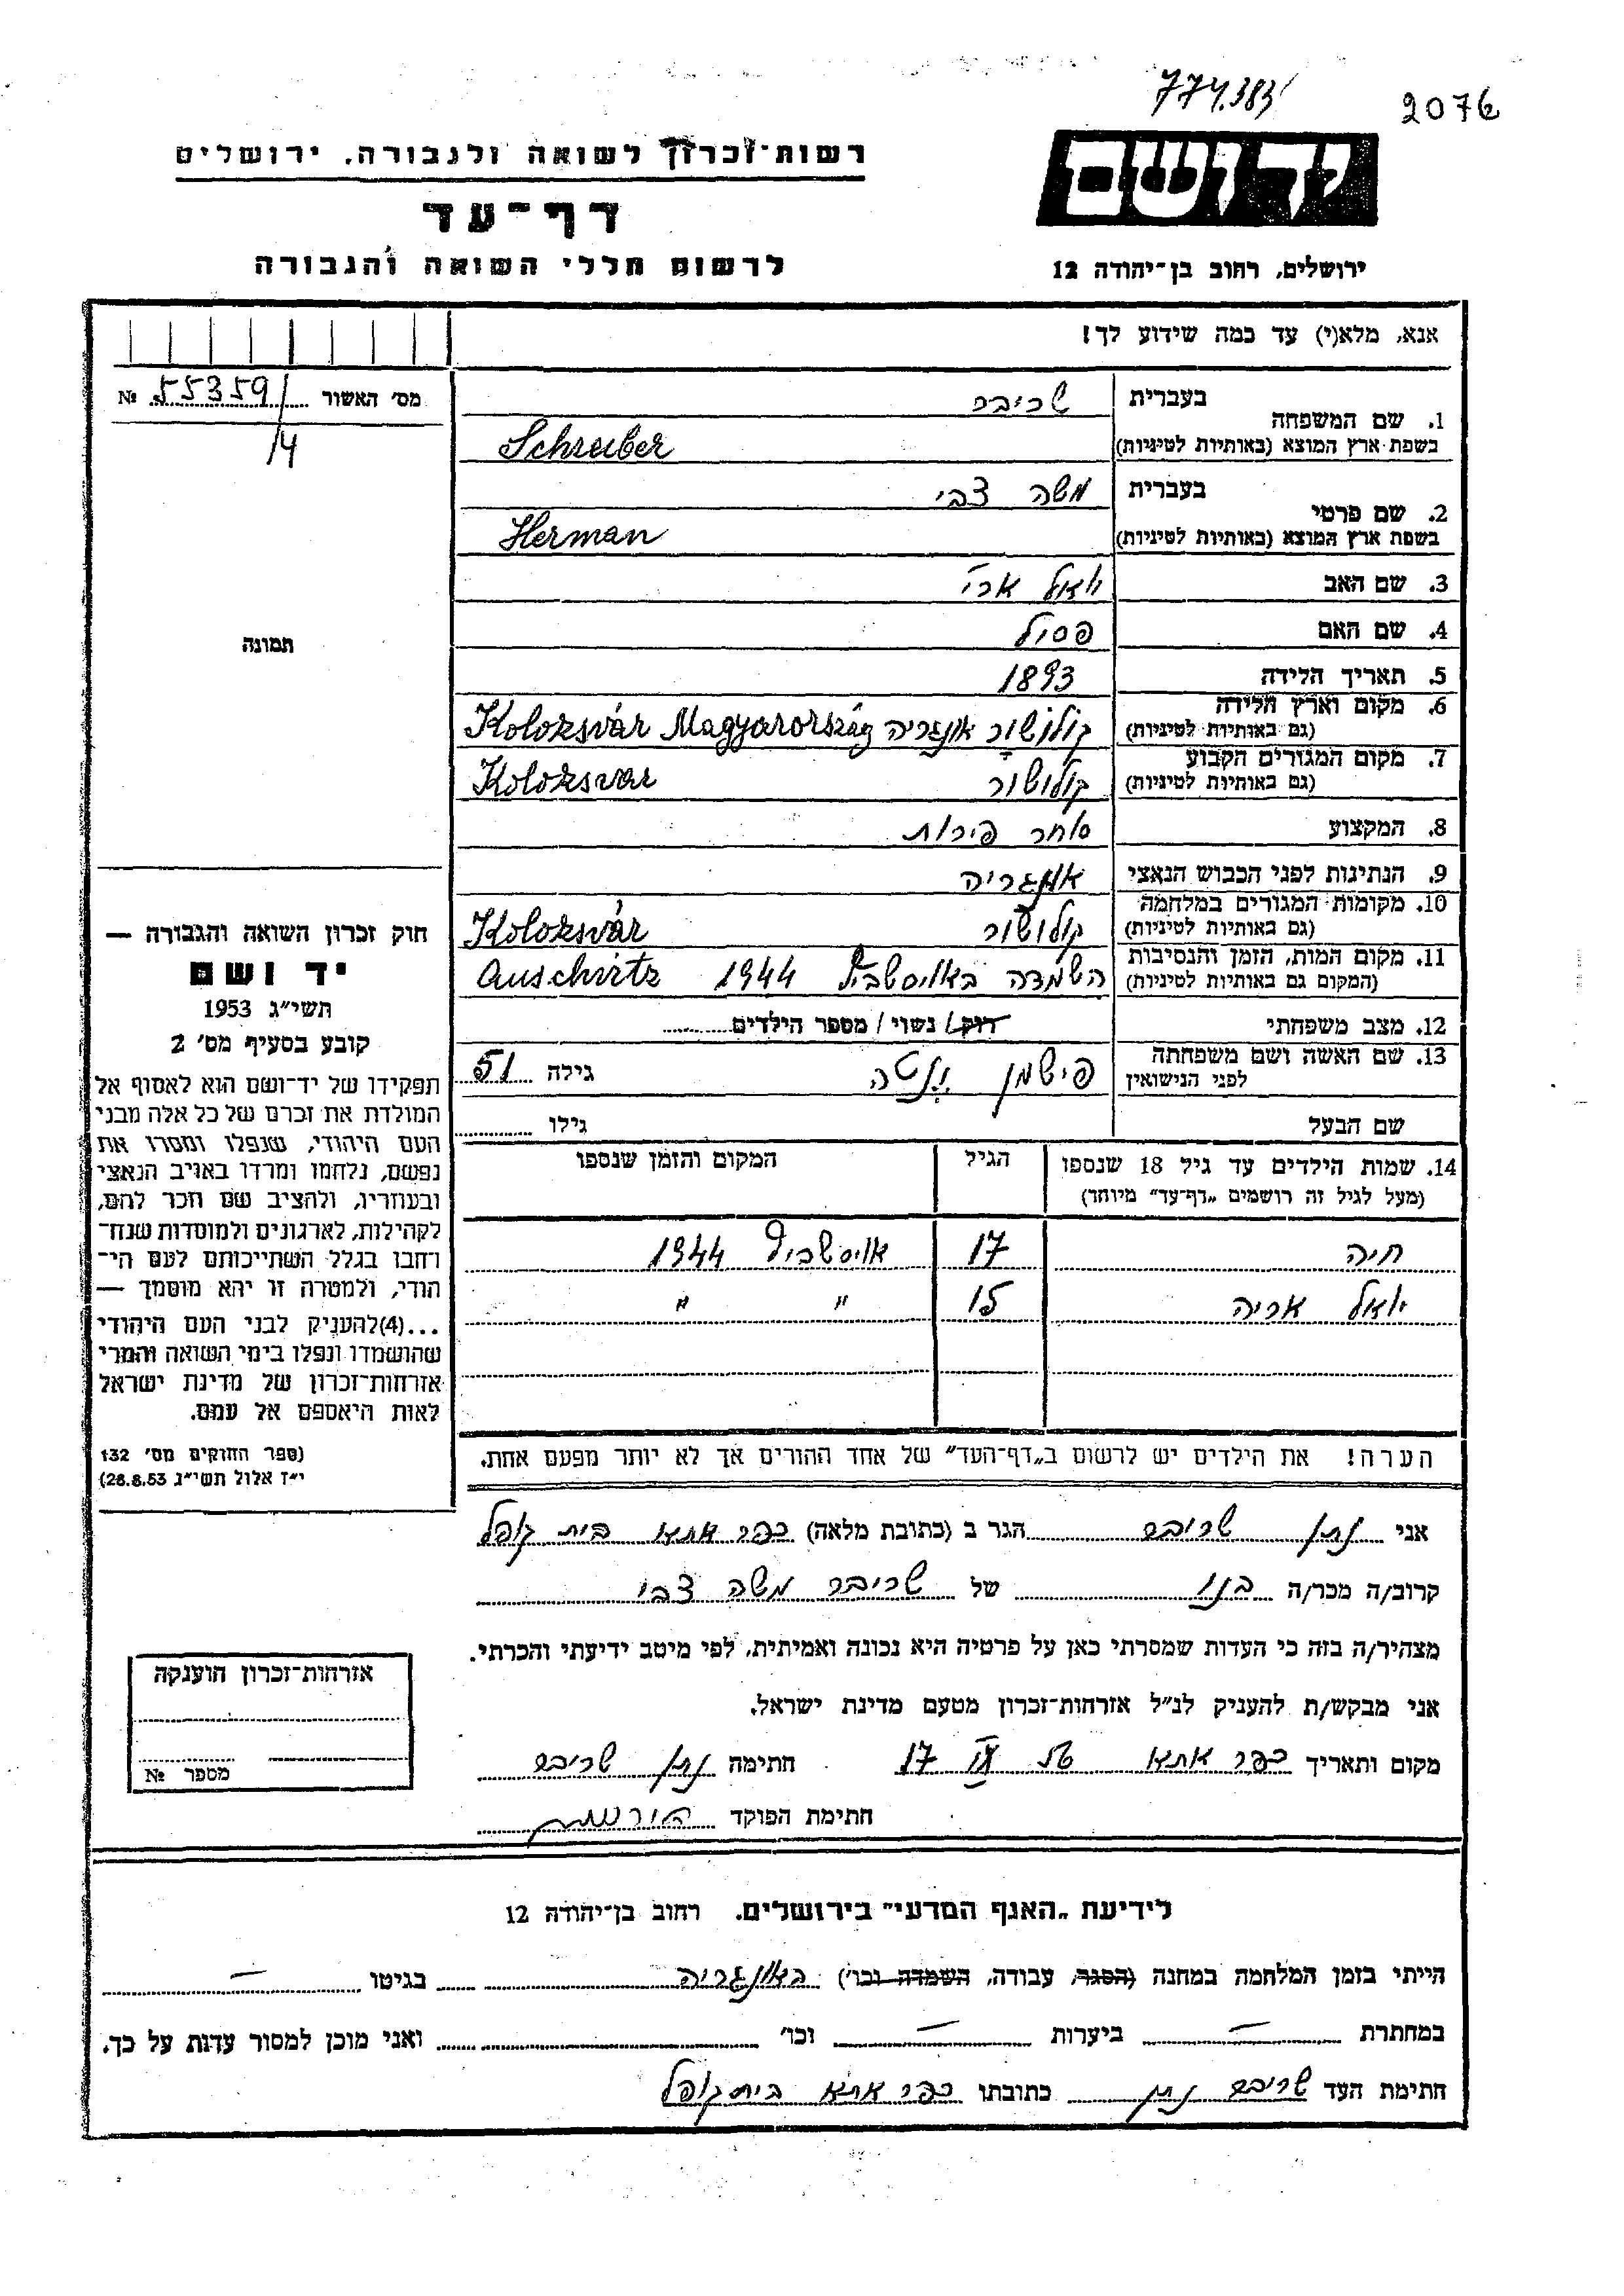 774.383
2076
רשות־זכרון לשואה ולגבורה, ירושלים
יד ושם
דף־עד
לרשום חללי השואה והגבורה
ירושלים, רחוב בן־יהודה 12
אנא, מלא(י) עד כמה שידוע לך!
מס׳ האשור 55359/ №
/4
1. שם המשפחה
בעברית שריבר
בשפת ארץ המוצא (באותיות לטיניות) Schreiber
2. שם פרטי
בעברית משה צבי
בשפת ארץ המוצא (באותיות לטיניות) Herman
3. שם האב יואל ארי
4. שם האם פסיל
5. תאריך הלידה 1893
6. מקום וארץ הלידה
(גם באותיות לטיניות) קולושור אונגריה Kolozsvár Magyarország
7. מקום המגורים הקבוע
(גם באותיות לטיניות) קולושור Kolozsvar
8. המקצוע סוחר פירות
9. הנתינות לפני הכבוש הנאצי אונגריה
10. מקומות המגורים במלחמה
(גם באותיות לטיניות) קולושור Kolozsvár
11. מקום המות, הזמן והנסיבות
(המקום גם באותיות לטיניות) השמדה באויסשביץ 1944 Auschvitz
12. מצב משפחתי רווק/ נשוי / מספר הילדים
13. שם האשה ושם משפחתה
לפני הנישואין פישמן גילה 51
שם הבעל גילו
14. שמות הילדים עד גיל 18 שנספו הגיל המקום והזמן שנספו
(מעל לגיל זה רושמים „דף־עד״ מיוחד)
חיה 17 אויסשביץ 1944
יואל אריה 15 " "
הערה! את הילדים יש לרשום ב„דף־העד״ של אחד ההורים אך לא יותר מפעם אחת.
תמונה
חוק זכרון השואה והגבורה —
יד ושם
תשי״ג 1953
קובע בסעיף מס׳ 2
תפקידו של יד־ושם הוא לאסוף אל
המולדת את זכרם של כל אלה מבני
העם היהודי, שנפלו ומסרו את
נפשם, נלחמו ומרדו באויב הנאצי
ובעוזריו, ולהציב שם וזכר להם,
לקהילות, לארגונים ולמוסדות שנח־
רחבו בגלל השתייכותם לעם הי־
הודי, ולמטרה זו יהא מוסמך —
...(4) להעניק לבני העם היהודי
שהושמדו ונפלו בימי השואה והמרי
אזרחות־זכרון של מדינת ישראל
לאות היאספם אל עמם.
(ספר החוקים מס׳ 132
י״ז אלול תשי״ג 28.8.53)
אני נתן שריבר הגר ב (כתובת מלאה) כפר אתא בית קופל
קרוב/ה מכר/ה בנו של שריבר משה צבי
מצהיר/ה בזה כי העדות שמסרתי כאן על פרטיה היא נכונה ואמיתית, לפי מיטב ידיעתי והכרתי.
אני מבקש/ת להעניק לנ״ל אזרחות־זכרון מטעם מדינת ישראל.
מקום ותאריך כפר אתא 17 חתימה נתן שריבר
חתימת הפוקד
אזרחות־זכרון הוענקה
מספר №
לידיעת „האגף המדעי״ בירושלים, רחוב בן־יהודה 12
הייתי בזמן המלחמה במחנה (הסגר, עבודה, השמדה וכו׳) באונגריה בגיטו —
במחתרת — ביערות — וכו׳ ואני מוכן למסור עדות על כך.
חתימת העד שריבר נתן כתובתו כפר אתא בית קופל